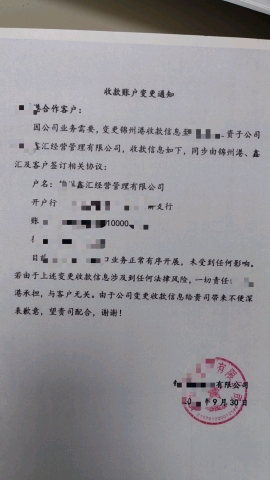 收款账户变更通知
合作客户：
因公司业务需要，变更锦州港收款信息至 资子公司
鑫汇经营管理有限公司，收款信息如下，同步由锦州港、鑫
汇及客户签订相关协议：
户名： 鑫汇经营管理有限公司
开户行 支行
账 10000
目 业务正常有序开展，未受到任何影响。
若由于上述变更收款信息涉及到任何法律风险，一切责任
港承担，与客户无关。由于公司变更收款信息给贵司带来不便深
表歉意，望贵司配合，谢谢！
有限公司
年9月30日